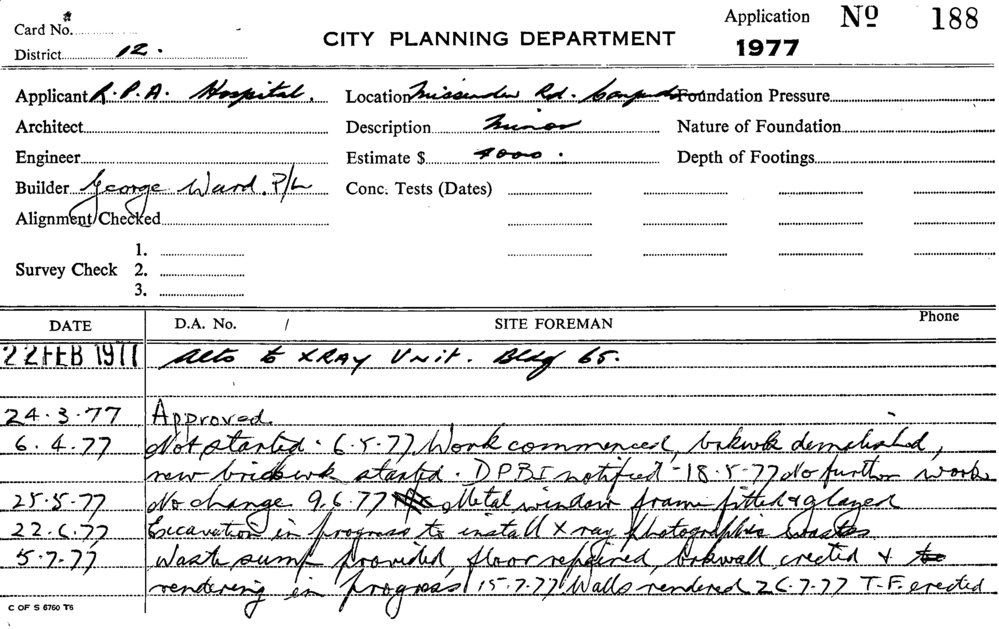 Card No.
District 12.
CITY PLANNING DEPARTMENT
Application Nº 188
1977
Applicant R.P.A. Hospital. Location Missenden Rd. Foundation Pressure
Architect Description Minor Nature of Foundation
Engineer Estimate $ 4000. Depth of Footings
Builder George Ward. P/L Conc. Tests (Dates)
Alignment Checked
Survey Check 1.
2.
3.
DATE D.A. No. / SITE FOREMAN Phone
22 FEB 1977 Alts to XRAY Unit. Bldg 65.
24.3.77 Approved.
6.4.77 Not started. 6.5.77 Work commenced, brkwk demolished,
new brickwk started. DPBI notified - 18.5.77 No further work
25.5.77 No change 9.6.77 Metal window frame fitted & glazed
22.6.77 Excavation in progress to install X ray photographic wastes
5.7.77 Waste sump provided, floor repaired, brkwall erected &
rendering in progress 15.7.77 Walls rendered 26.7.77 T-F. erected
C OF S 6760 T6